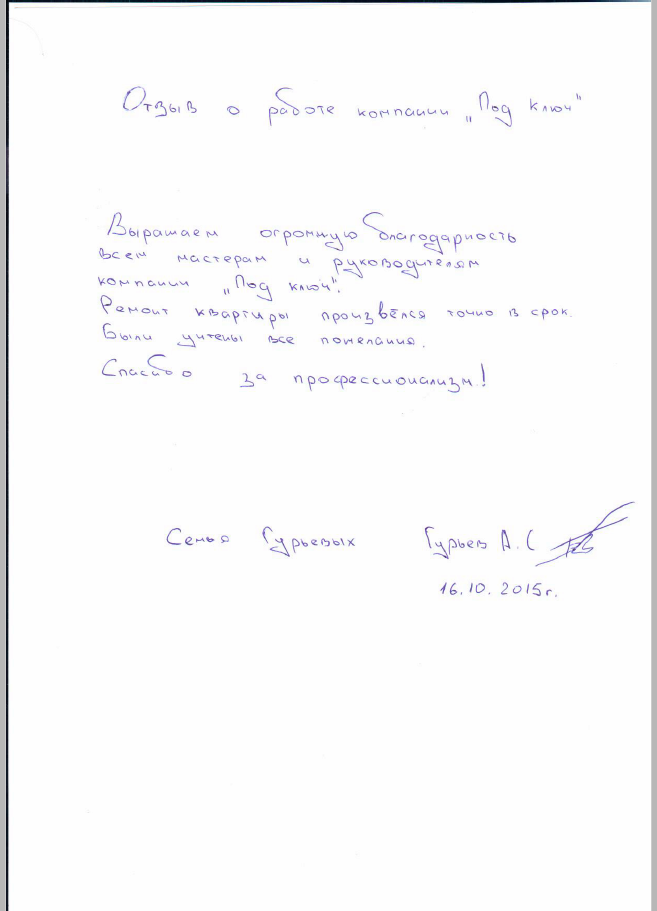 Отзыв о работе компании „Под ключ"
Выражаем огромную благодарность
всем мастерам и руководителям
компании „Под ключ".
Ремонт квартиры произвёлся точно в срок.
Были учтены все пожелания.
Спасибо за профессионализм!
Семья Гурьевых Гурьев А.С
16.10.2015г.